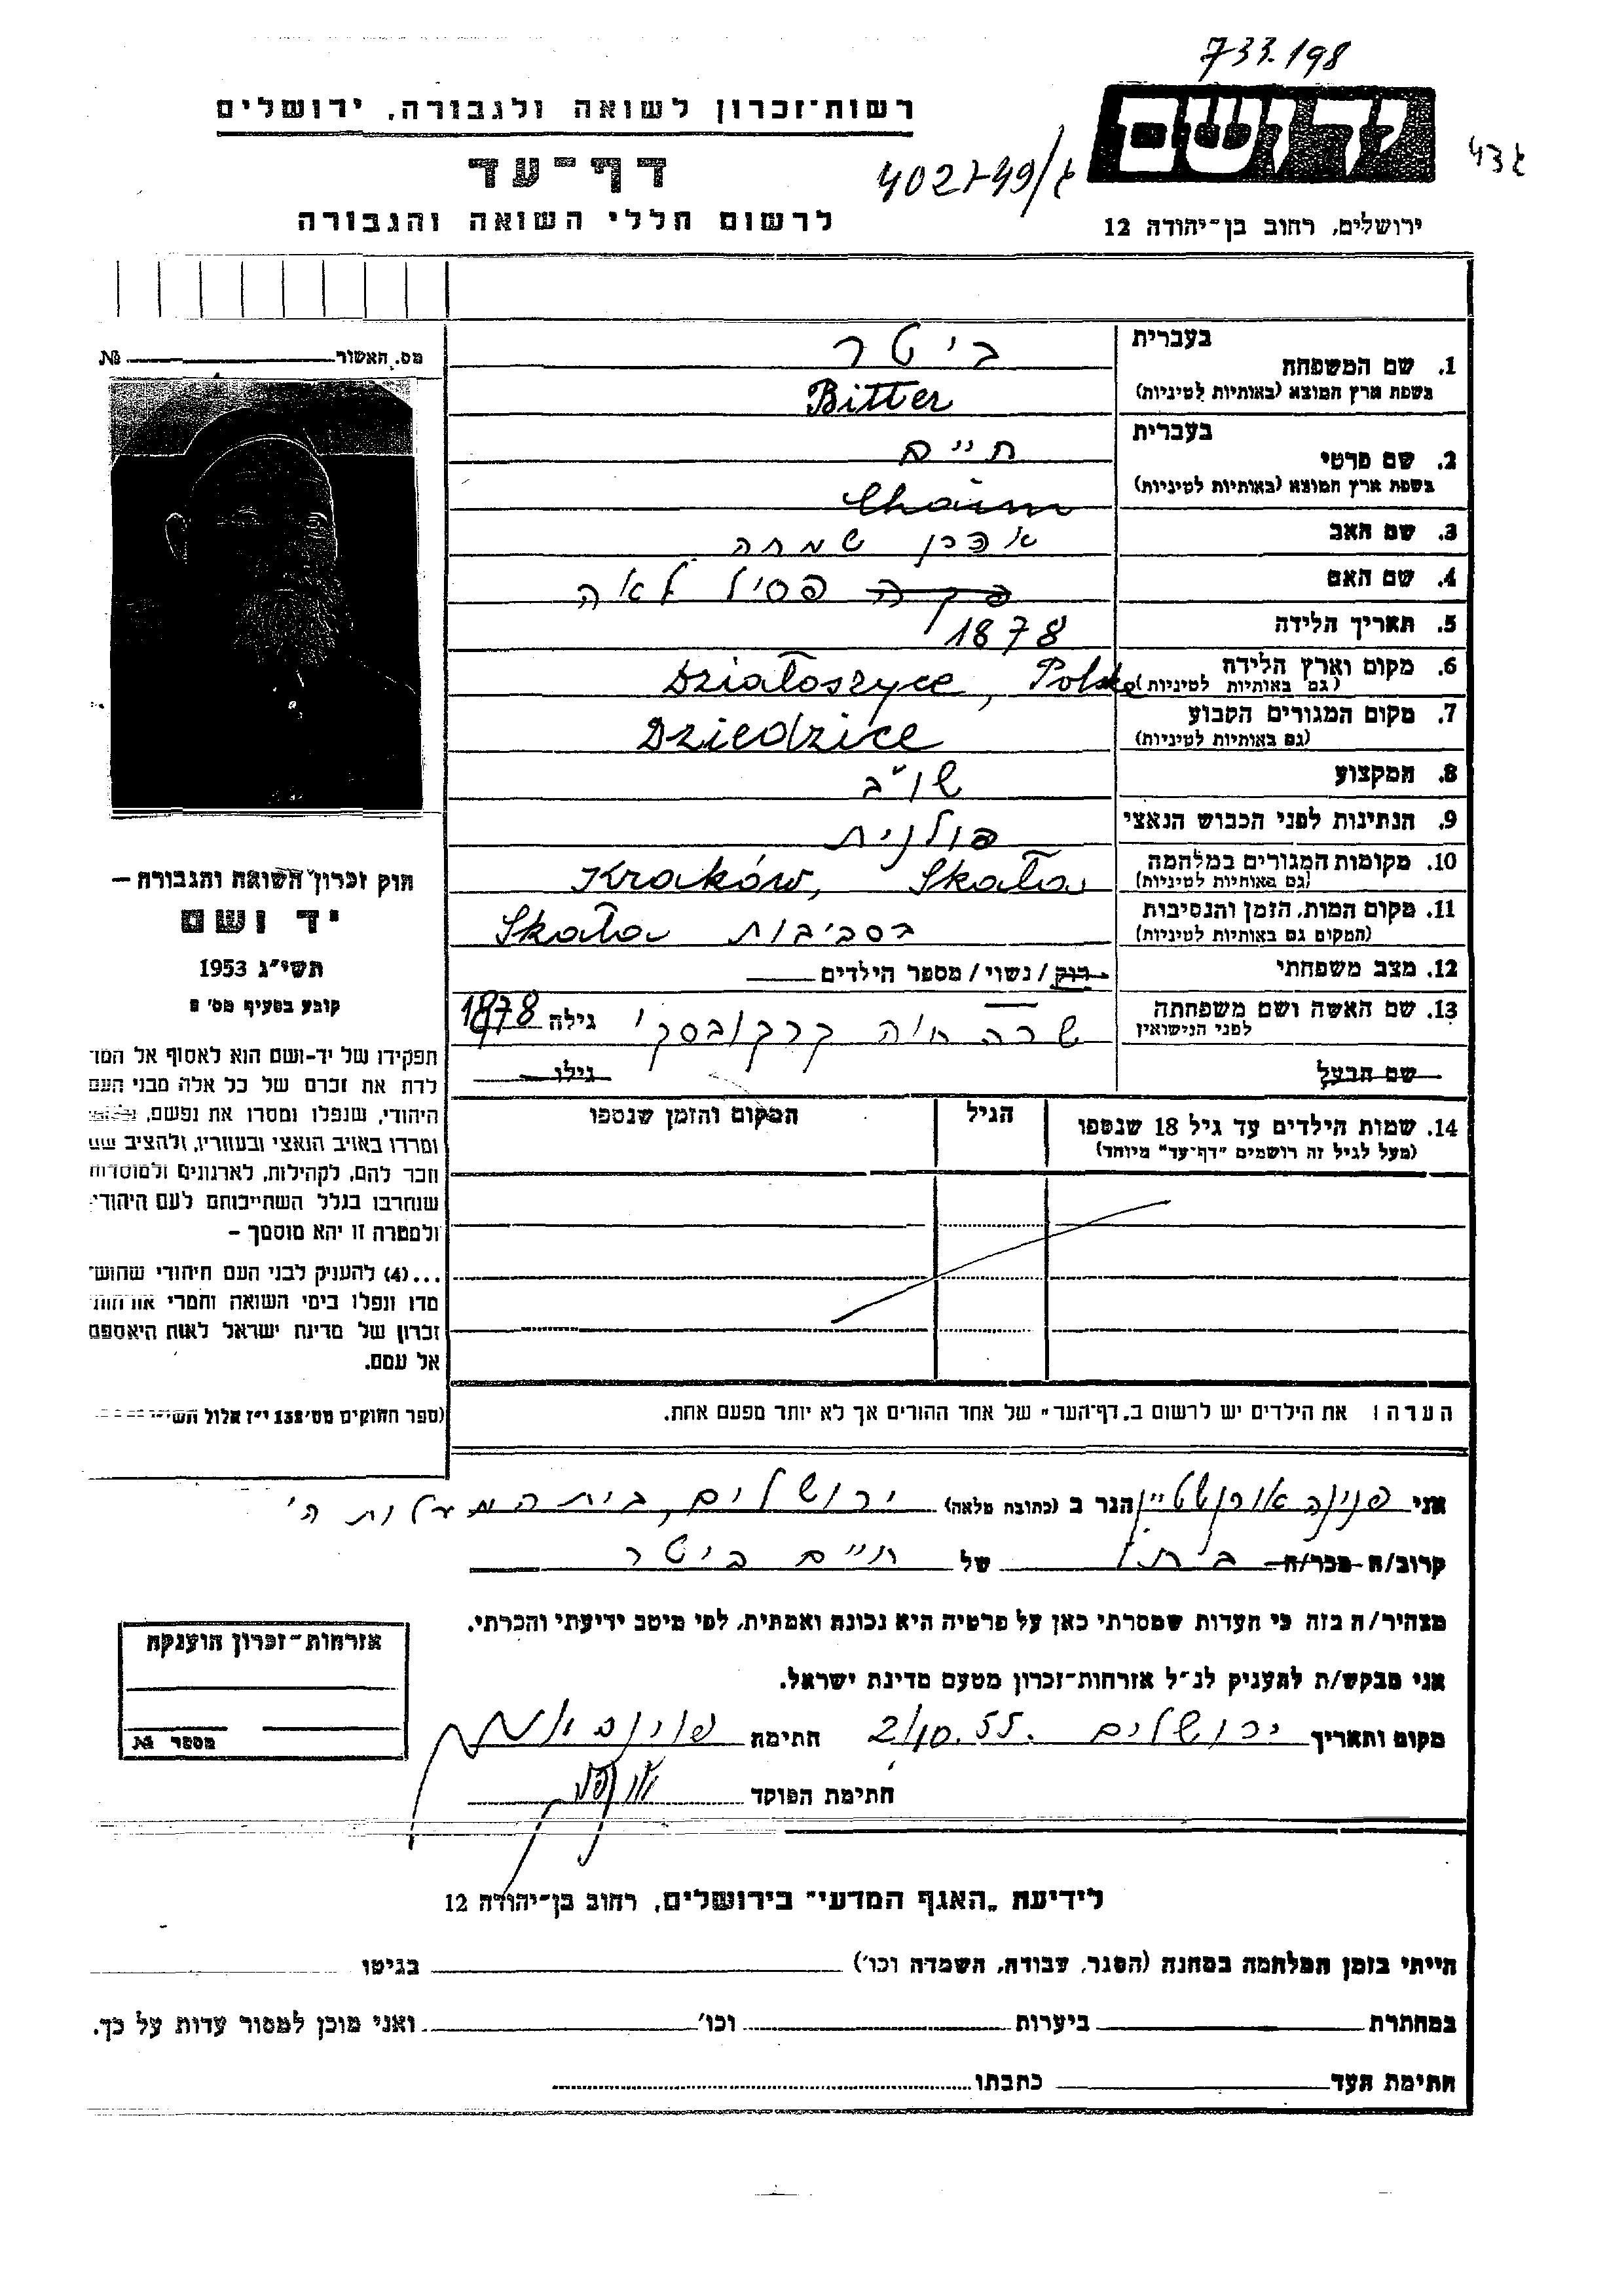 733.198
רשות־זכרון לשואה ולגבורה, ירושלים
יד ושם
דף־עד
לרשום חללי השואה והגבורה
ירושלים, רחוב בן־יהודה 12
מס. האשור № 
בעברית ביטר
1. שם המשפחה
בשפת ארץ המוצא (באותיות לטיניות) Bitter
בעברית חיים
2. שם פרטי
בשפת ארץ המוצא (באותיות לטיניות) Chaim
3. שם האב אהרן שמחה
4. שם האם פסיל לאה
5. תאריך הלידה 1878
6. מקום וארץ הלידה Działoszyce, Polska
(גם באותיות לטיניות)
7. מקום המגורים הקבוע Dziedzice
(גם באותיות לטיניות)
8. המקצוע שו"ב
9. הנתינות לפני הכבוש הנאצי פולנית
10. מקומות המגורים במלחמה Kraków, Skała
(גם באותיות לטיניות)
11. מקום המות, הזמן והנסיבות בסביבות Skała
(המקום גם באותיות לטיניות)
12. מצב משפחתי רווק / נשוי / מספר הילדים
13. שם האשה ושם משפחתה שרה חיה קרקובסקי גילה 1878
לפני הנישואין
שם הבעל גילו
14. שמות הילדים עד גיל 18 שנספו הגיל המקום והזמן שנספו
(מעל לגיל זה רושמים "דף־עד" מיוחד)
הערה: את הילדים יש לרשום ב„דף־העד" של אחד ההורים אך לא יותר מפעם אחת.
חוק זכרון השואה והגבורה –
יד ושם
תשי"ג 1953
קובע בסעיף מס'
תפקידו של יד-ושם הוא לאסוף אל המו
לדת את זכרם של כל אלה מבני העם
היהודי, שנפלו ומסרו את נפשם,
ומרדו באויב הנאצי ובעוזריו, ולהציב שם
וזכר להם, לקהילות, לארגונים ולמוסדות
שנחרבו בגלל השתייכותם לעם היהודי
ולמטרה זו יהא מוסמך –
...(4) להעניק לבני העם היהודי שהוש־
מדו ונפלו בימי השואה והמרי אזרחות
זכרון של מדינת ישראל לאות היאספם
אל עמם.
(ספר החוקים מס' 132 י"ז אלול תשי"
אני פנינה אורנשטיין הגר ב (כתובת מלאה) ירושלים, בית המעלות ה'
קרוב/ה מכר/ה בתו של חיים ביטר
מצהיר/ה בזה כי העדות שמסרתי כאן על פרטיה היא נכונה ואמתית, לפי מיטב ידיעתי והכרתי.
אני מבקש/ת להעניק לנ"ל אזרחות־זכרון מטעם מדינת ישראל.
מקום ותאריך ירושלים 2/10.55 חתימת
חתימת הפוקד
אזרחות־זכרון הוענקה
מספר №
לידיעת „האגף המדעי" בירושלים, רחוב בן־יהודה 12
הייתי בזמן המלחמה במחנה (הסגר, עבודה, השמדה וכו') בגיטו
במחתרת ביערות וכו' ואני מוכן למסור עדות על כך.
חתימת העד כתבתו